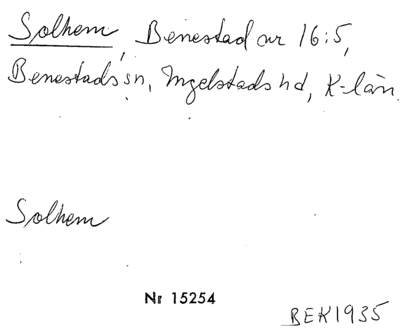 Solhem, Benestad nr 16:5,
Benestads sn, Ingelstads hd, K-län.
Solhem
Nr 15254
BEK1935